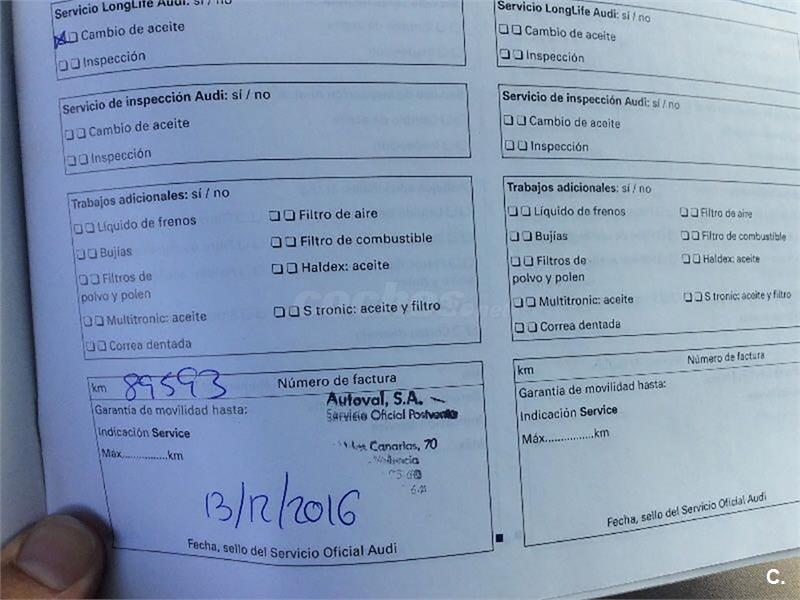 Servicio LongLife Audi: sí / no
Cambio de aceite
Inspección
Servicio de inspección Audi: sí / no
Cambio de aceite
Inspección
Trabajos adicionales: sí / no
Líquido de frenos
Filtro de aire
Bujías
Filtro de combustible
Filtros de
polvo y polen
Haldex: aceite
Multitronic: aceite
S tronic: aceite y filtro
Correa dentada
km 89593
Número de factura
Garantía de movilidad hasta:
Indicación Service
Máx...............km
Autoval, S.A.
Servicio Oficial Postventa
Canarias, 70
Valencia
13/12/2016
Fecha, sello del Servicio Oficial Audi
Servicio LongLife Audi: sí / no
Cambio de aceite
Inspección
Servicio de inspección Audi: sí / no
Cambio de aceite
Inspección
Trabajos adicionales: sí / no
Líquido de frenos
Filtro de aire
Bujías
Filtro de combustible
Filtros de
polvo y polen
Haldex: aceite
Multitronic: aceite
S tronic: aceite y filtro
Correa dentada
km
Número de factura
Garantía de movilidad hasta:
Indicación Service
Máx...............km
Fecha, sello del Servicio Oficial Audi
coches.net
C.